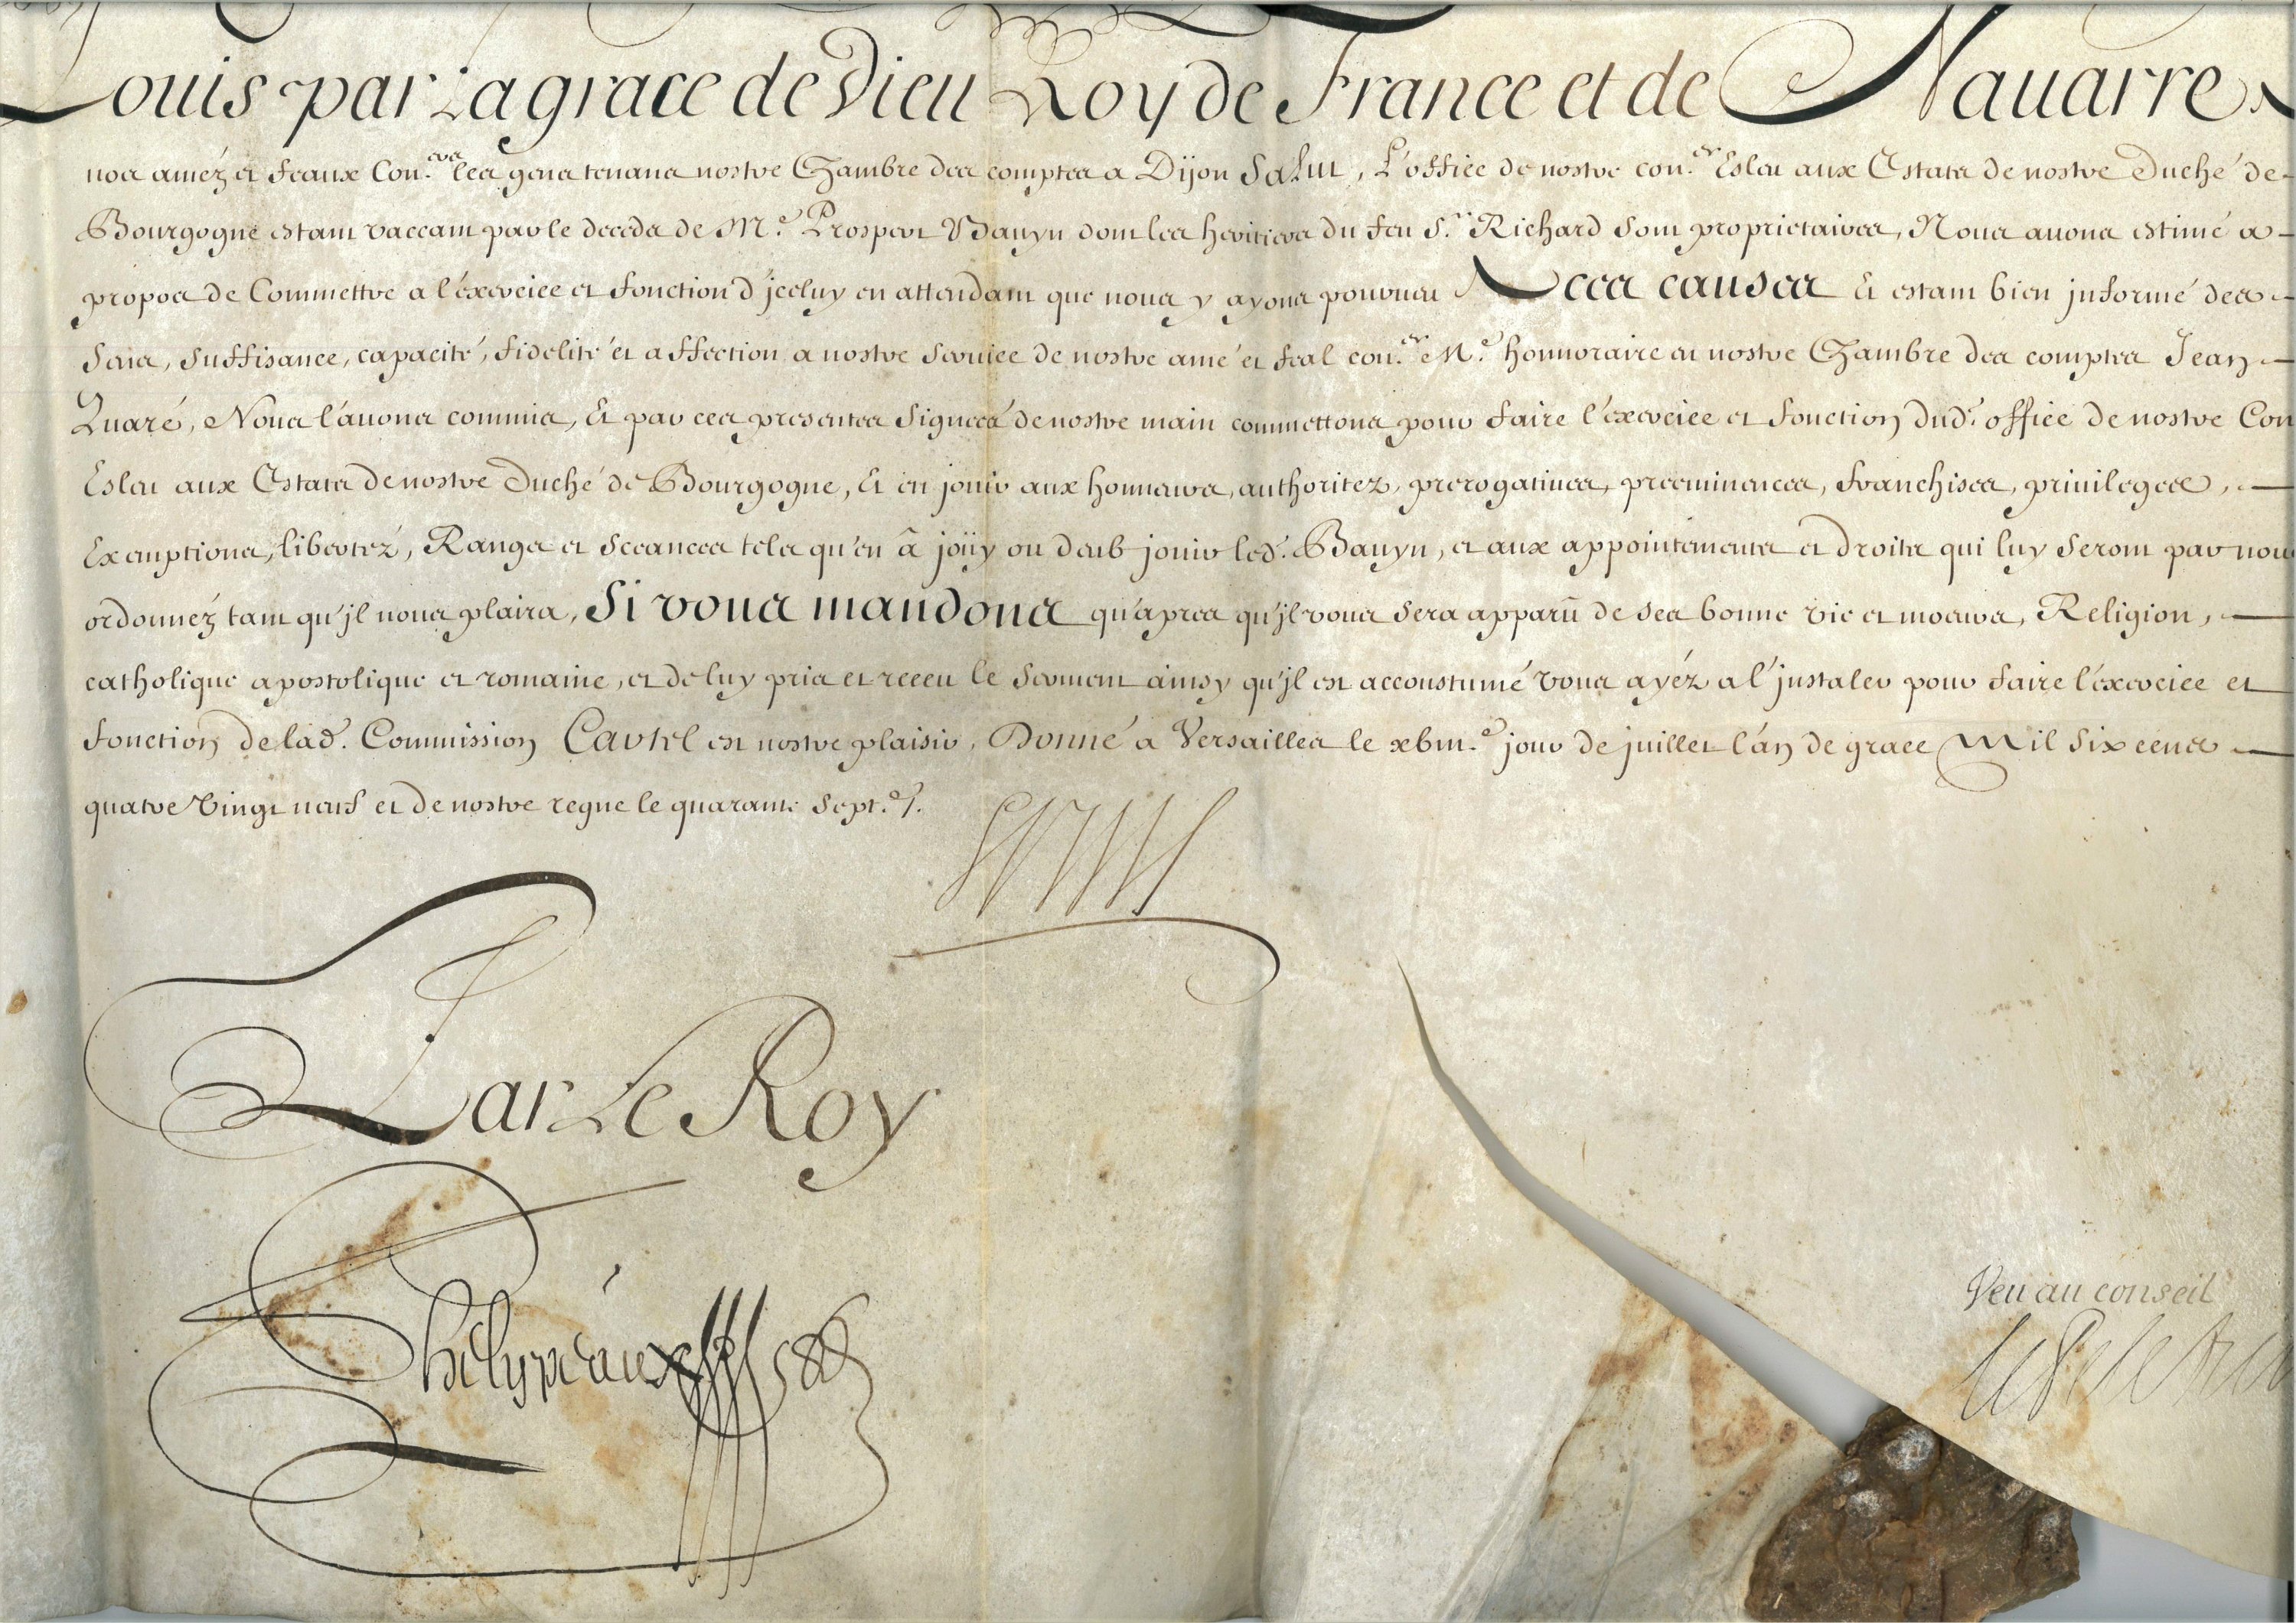 Louis par La grace de Dieu Roy de France et de Nauarre A
nos améz et feaux Con.ers les gens tenans nostre Chambre des comptes a Dijon Salut, L'office de nostre con.er Esleu aux Estats de nostre Duché de
Bourgogne estant vaccant par le deceds de M.e Prosper Bauyn dont les heritiers du feu S.r Richard sont proprietaires, Nous auons estimé a
propos de Commettre a l'éxercice et fonction d'jceluy en attendant que nous y ayons pourueu A ces causes Et estant bien jnformé des
sens, suffisance, capacité, fidelité et affection a nostre seruice de nostre amé et feal con.er M.e honnoraire en nostre Chambre des comptes Jean
Quaré, Nous l'auons commis, Et par ces presentes signeés de nostre main commettons pour faire l'éxercice et fonction dud. office de nostre Con
Esleu aux Estats de nostre Duché de Bourgogne, Et en jouir aux honneurs, authoritez, prerogatiues, preeminences, franchises, priuileges,
Exemptions, libertéz, Rangs et sceances tels qu'en â joüy ou deub jouir led. Bauyn, et aux appointements et droits qui luy seront par nous
ordonnéz tant qu'jl nous plaira, Si vous mandons qu'apres qu'jl vous sera apparü de ses bonne vie et moeurs, Religion,
catholique apostolique et romaine, et de luy pris et receu le serment ainsy qu'jl est accoustumé vous ayéz a l'jnstaler pour faire l'éxercice et
fonction de lad. Commission Car tel est nostre plaisir, Donné a Versailles le xbm.e jour de juillet l'an de grace Mil six cens
quatre vingt neuf et de nostre regne le quarante sept.e
Louis
Par Le Roy
Phélypeaux
Veu au conseil
le Peletier